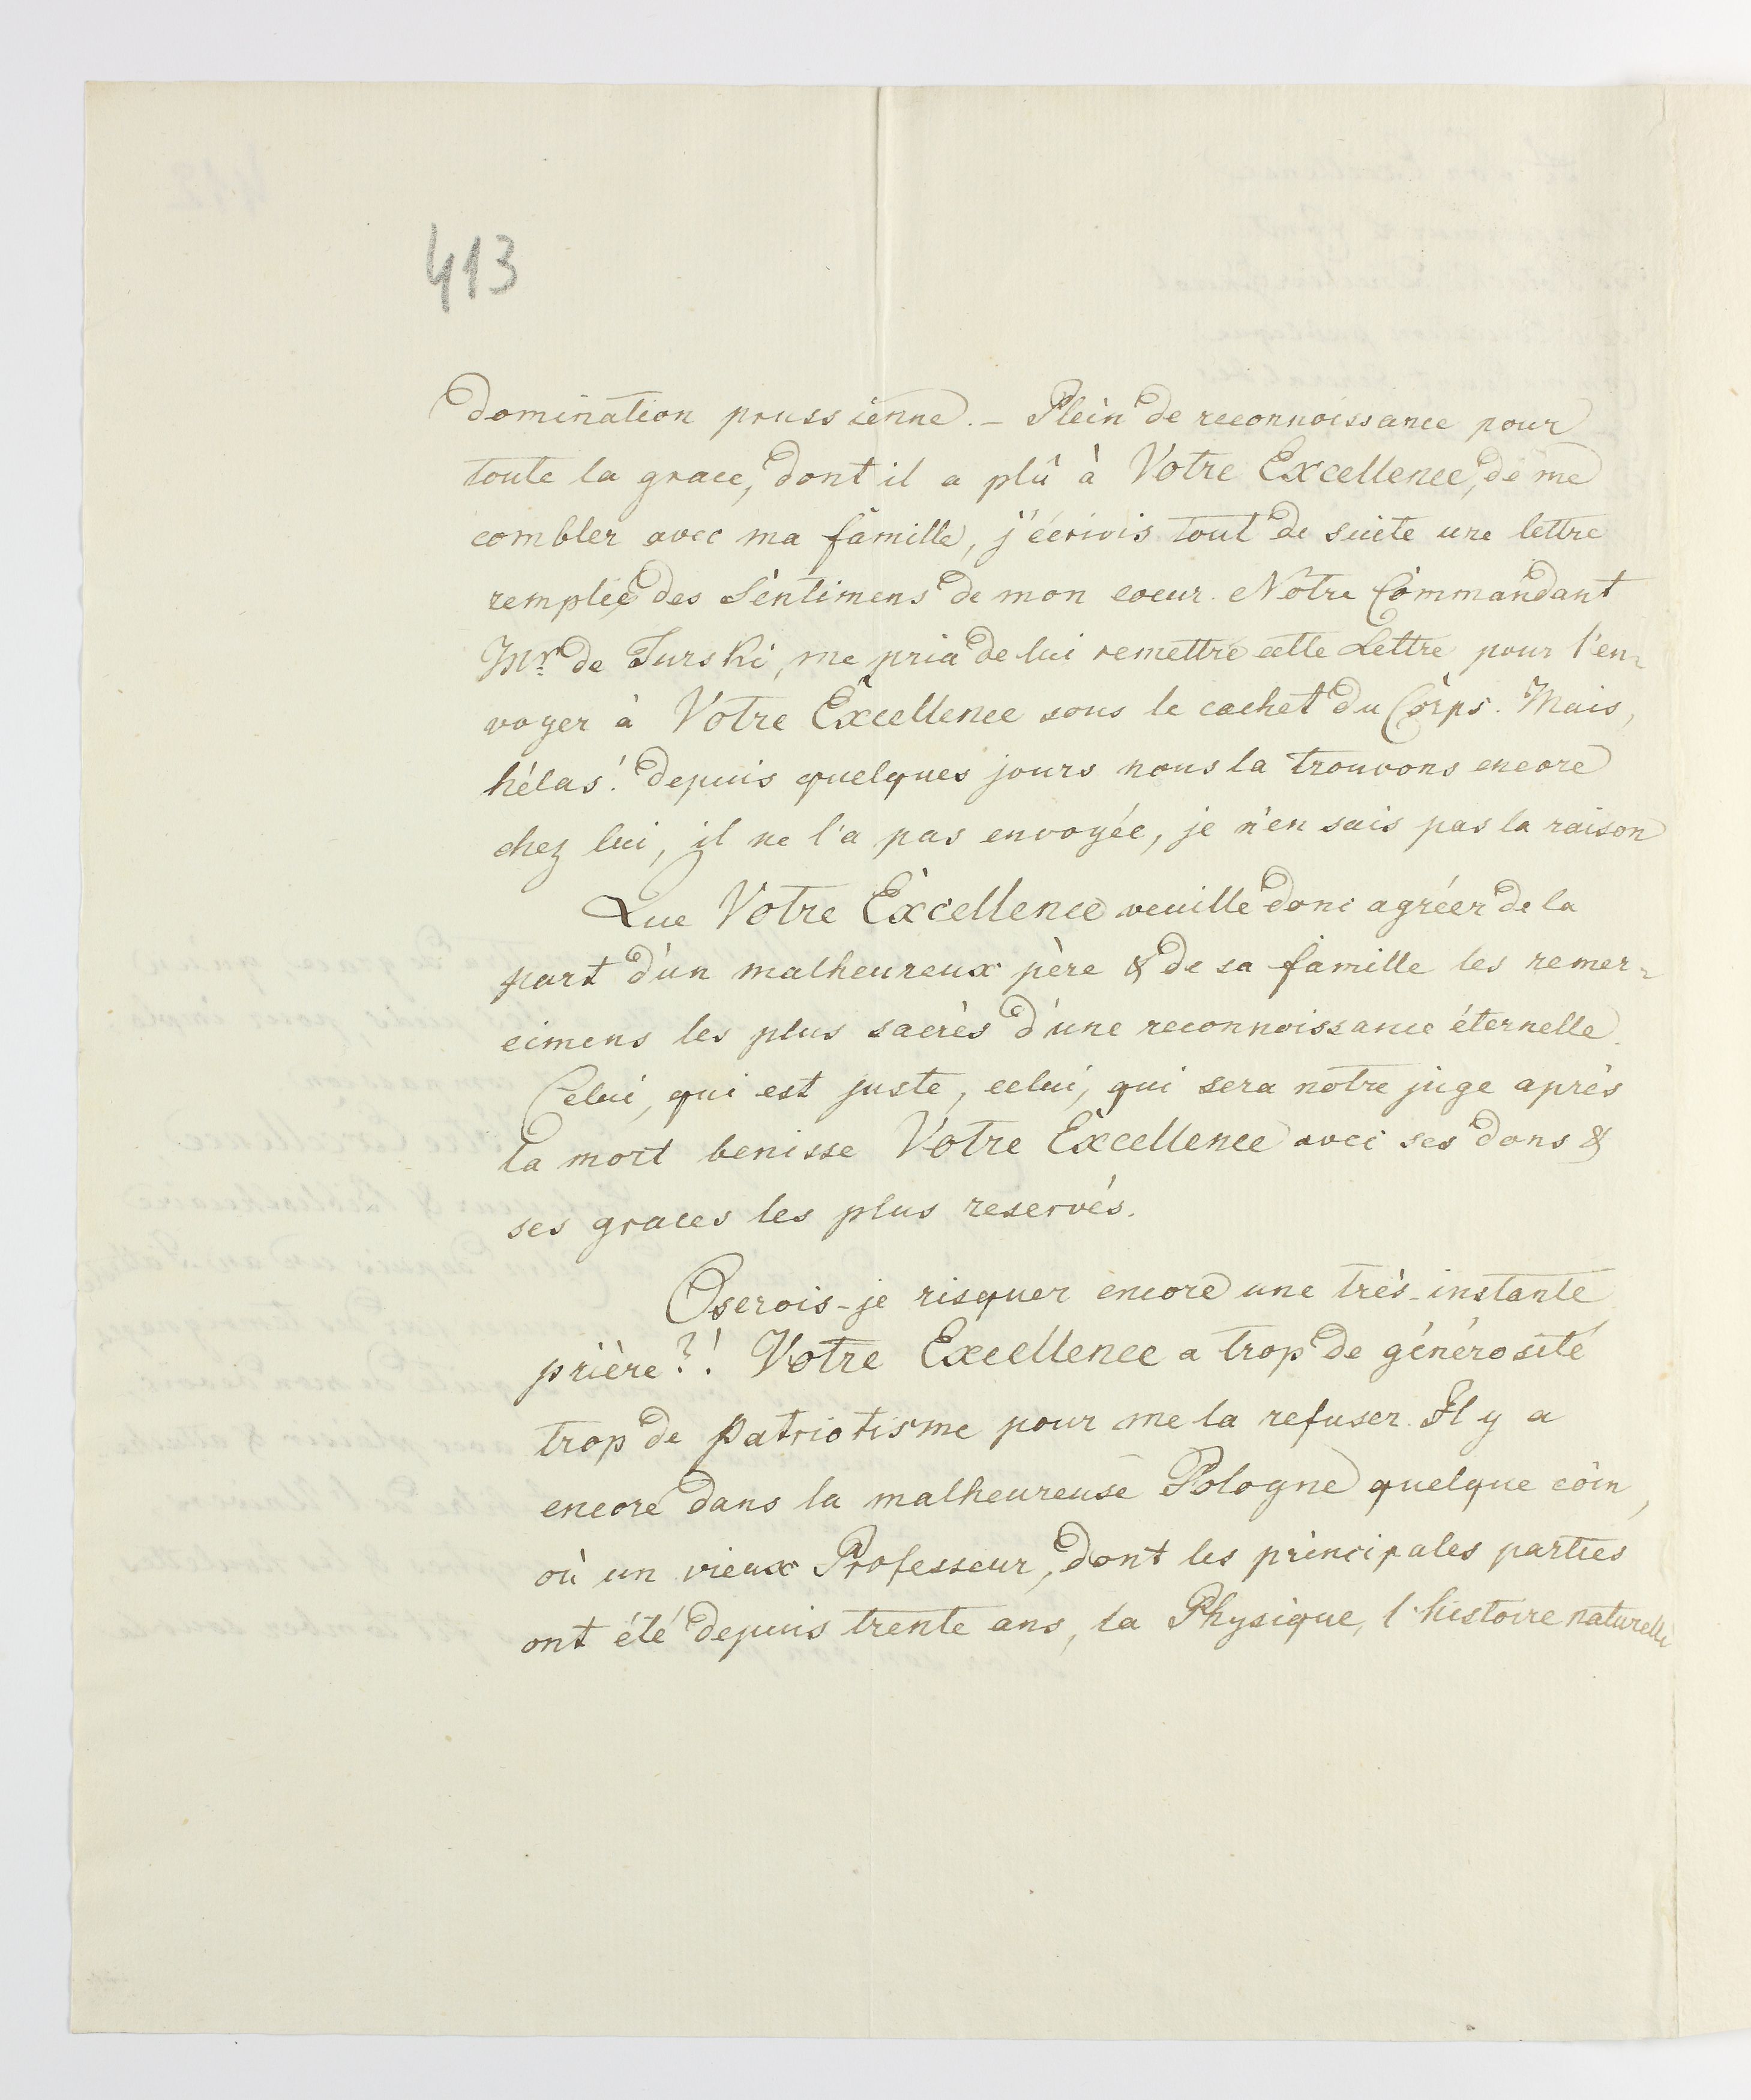 413
domination prussienne. – Plein de reconnoissance pour
toute la grace, dont il a plû à Votre Excellence, de me
combler avec ma famille, j'écrivis tout de suite une lettre
remplie des Sentimens de mon coeur. Notre Commandant
Mr. de Turski, me pria de lui remettre cette Lettre pour l'en=
voyer à Votre Excellence sous le cachet du Corps. Mais,
hélas! depuis quelques jours nous la trouvons encore
chez lui, il ne l'a pas envoyée, je n'en sais pas la raison
Que Votre Excellence veuille donc agréer de la
part d'un malheureux père & de sa famille les remer=
cimens les plus sacrès d'une reconnoissance éternelle.
Celui, qui est juste, celui, qui sera notre juge après
la mort benisse Votre Excellence avec ses dons &
ses graces les plus reservés.
Oserois-je risquer encore une très-instante
prière?! Votre Excellence a trop de générosité
trop de patriotisme pour me la refuser. Il y a
encore dans la malheureuse Pologne quelque coin,
où un vieux Professeur, dont les principales parties
ont été depuis trente ans, la Physique, l'histoire naturelle